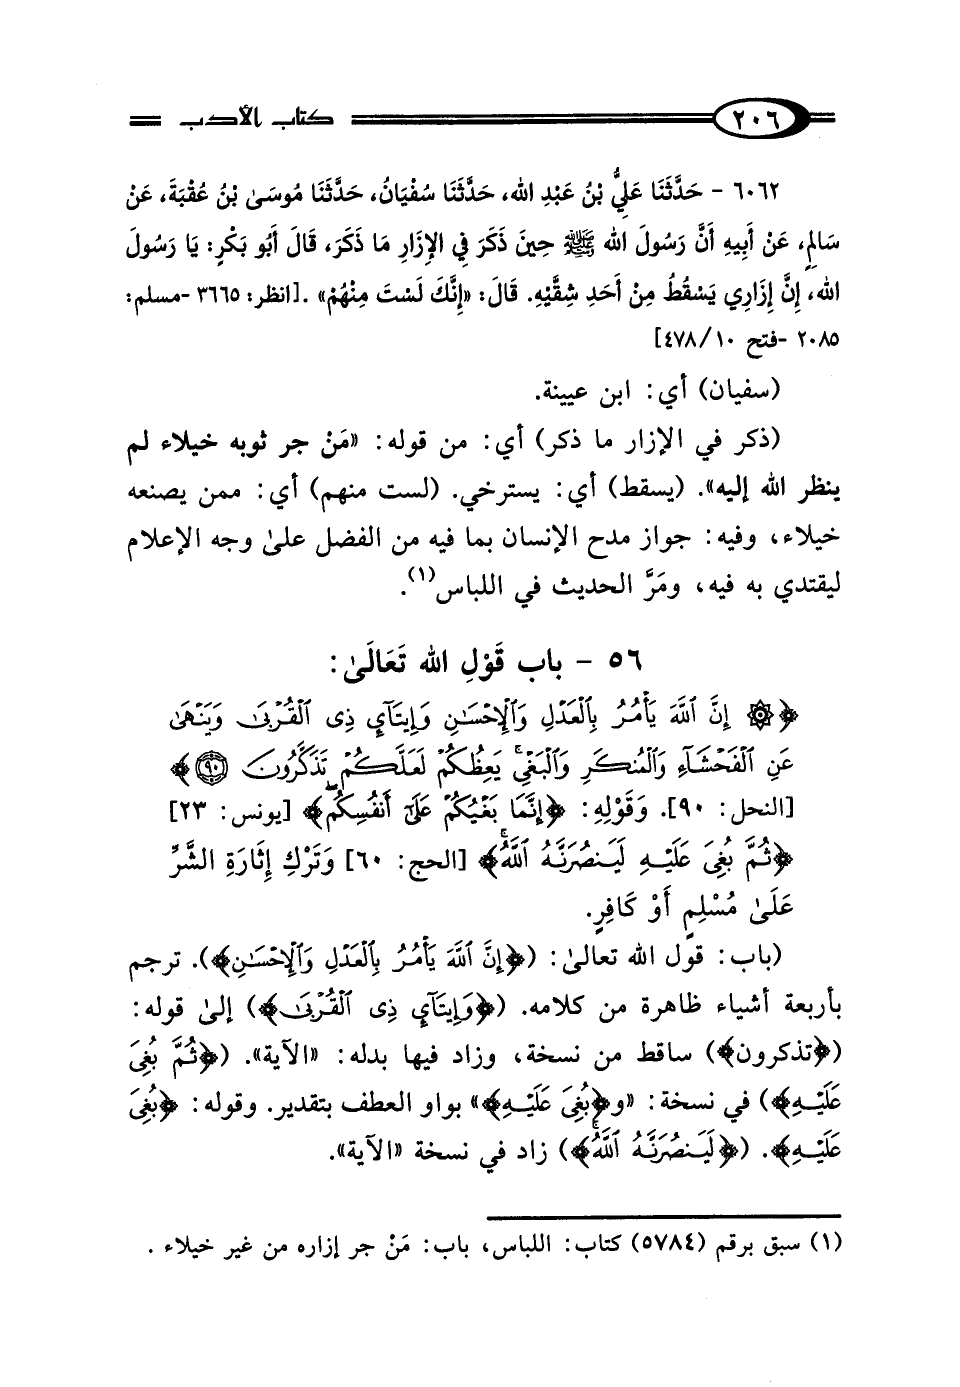 ٢٠٦ كتاب الأدب
٦٠٦٢ - حَدَّثَنَا عَلِيُّ بْنُ عَبْدِ الله، حَدَّثَنَا سُفْيَانُ، حَدَّثَنَا مُوسَىٰ بْنُ عُقْبَةَ، عَنْ
سَالِمٍ، عَنْ أَبِيهِ أَنَّ رَسُولَ الله ﷺ حِينَ ذَكَرَ فِي الإِزَارِ مَا ذَكَرَ، قَالَ أَبُو بَكْرٍ: يَا رَسُولَ
الله، إِنَّ إِزَارِي يَسْقُطُ مِنْ أَحَدِ شِقَّيْهِ. قَالَ: «إِنَّكَ لَسْتَ مِنْهُمْ» .[انظر: ٣٦٦٥ -مسلم:
٢٠٨٥ -فتح ١٠/ ٤٧٨]
(سفيان) أي: ابن عيينة.
(ذكر في الإزار ما ذكر) أي: من قوله: «مَنْ جر ثوبه خيلاء لم
ينظر الله إليه». (يسقط) أي: يسترخي. (لست منهم) أي: ممن يصنعه
خيلاء، وفيه: جواز مدح الإنسان بما فيه من الفضل علىٰ وجه الإعلام
ليقتدي به فيه، ومَرَّ الحديث في اللباس(١).
٥٦ - باب قَوْلِ الله تَعَالَىٰ:
﴿۞ إِنَّ ٱللَّهَ يَأۡمُرُ بِٱلۡعَدۡلِ وَٱلۡإِحۡسَٰنِ وَإِيتَآيِٕ ذِى ٱلۡقُرۡبَىٰ وَيَنۡهَىٰ
عَنِ ٱلۡفَحۡشَآءِ وَٱلۡمُنكَرِ وَٱلۡبَغۡيِۚ يَعِظُكُمۡ لَعَلَّكُمۡ تَذَكَّرُونَ ٩٠﴾
[النحل: ٩٠]. وَقَوْلِهِ: ﴿إِنَّمَا بَغۡيُكُمۡ عَلَىٰٓ أَنفُسِكُمۖ﴾ [يونس: ٢٣]
﴿ثُمَّ بُغِىَ عَلَيۡهِ لَيَنصُرَنَّهُ ٱللَّهُۚ﴾ [الحج: ٦٠] وَتَرْكِ إِثَارَةِ الشَّرِّ
عَلَىٰ مُسْلِمٍ أَوْ كَافِرٍ.
(باب: قول الله تعالىٰ: (﴿إِنَّ ٱللَّهَ يَأۡمُرُ بِٱلۡعَدۡلِ وَٱلۡإِحۡسَٰنِ﴾). ترجم
بأربعة أشياء ظاهرة من كلامه. (﴿وَإِيتَآيِٕ ذِى ٱلۡقُرۡبَىٰ﴾) إلىٰ قوله:
(﴿تذكرون﴾) ساقط من نسخة، وزاد فيها بدله: «الآية». (﴿ثُمَّ بُغِىَ
عَلَيۡهِ﴾) في نسخة: «و﴿بُغِىَ عَلَيۡهِ﴾» بواو العطف بتقدير. وقوله: ﴿بُغِىَ
عَلَيۡهِ﴾. (﴿لَيَنصُرَنَّهُ ٱللَّهُۚ﴾) زاد في نسخة «الآية».
(١) سبق برقم (٥٧٨٤) كتاب: اللباس، باب: مَنْ جر إزاره من غير خيلاء .